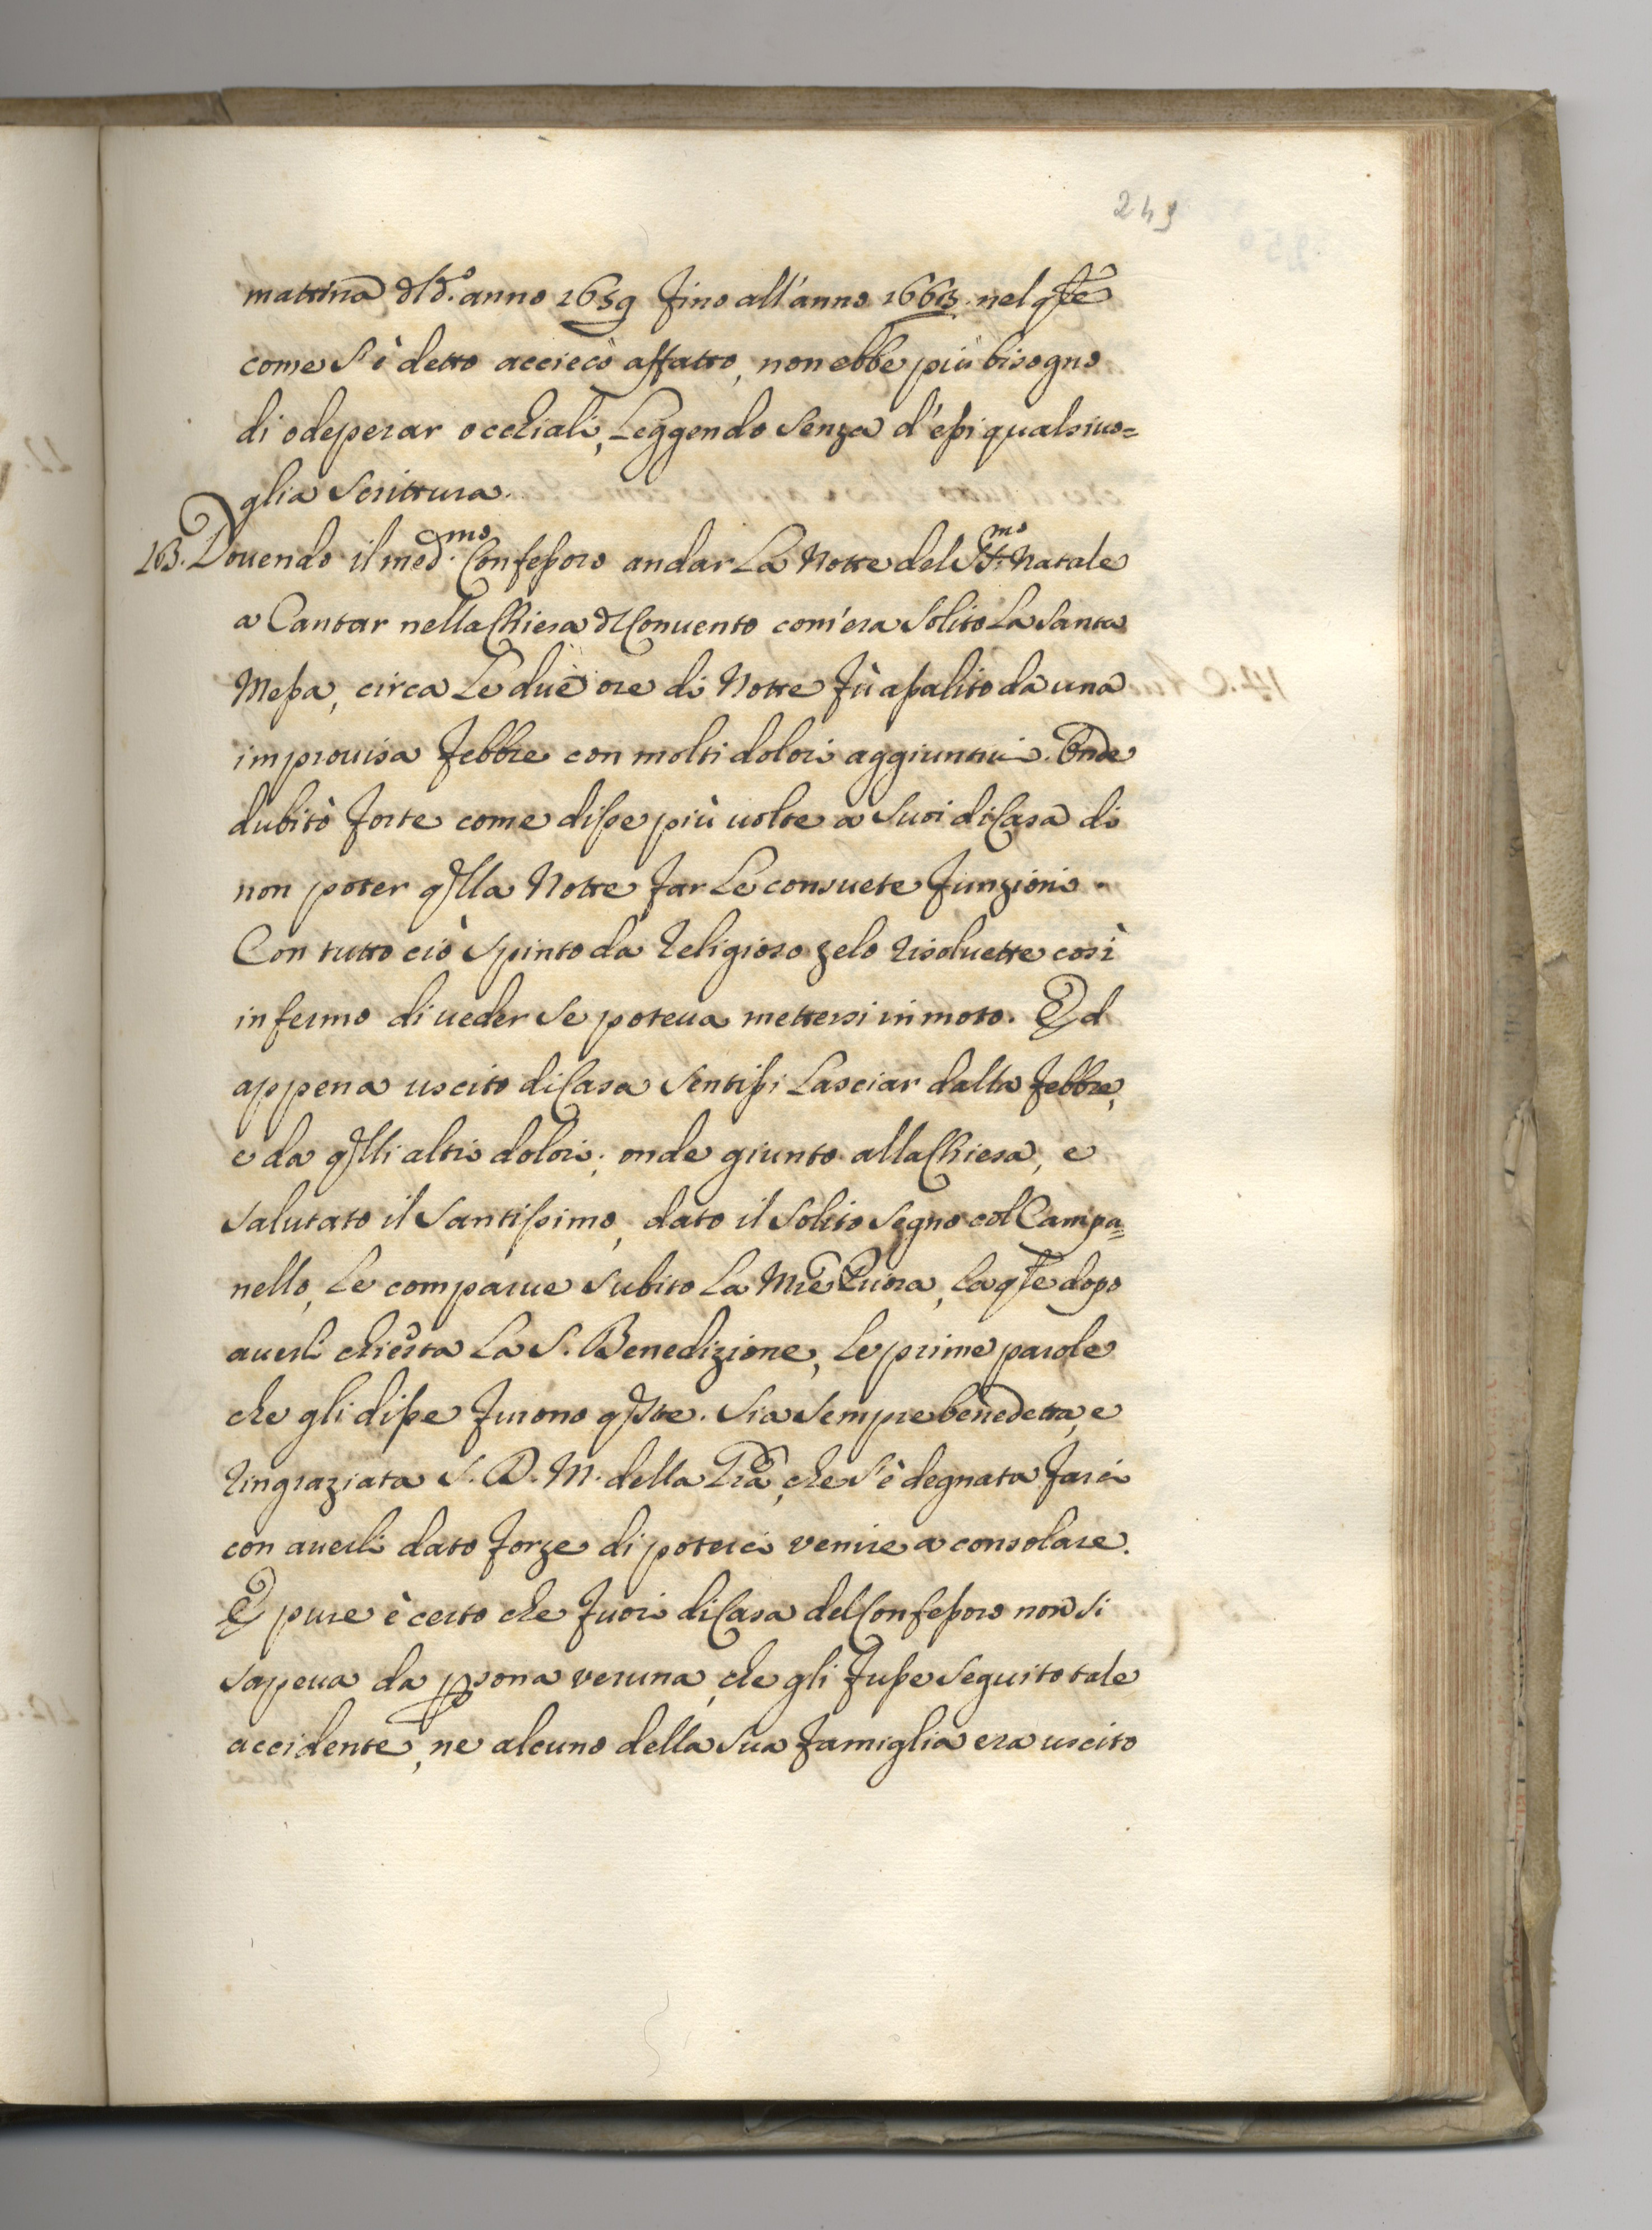 249
mattina dld.° anno 1659 fino all'anno 1663. nel qle
come s'è detto acciecò affatto, non ebbe più bisogno
di odeperar occhiali, Leggendo senza d'eßi qualsiuo=
glia scrittura.
13. Douendo il med.mo Confeßoro andar La Notte del SS.mo Natale
a Cantar nella Chiesa dl Conuento com'era solito La santa
Meßa, circa Le due ore di Notte fù aßalito da una
improuisa febbre con molti dolori aggiuntiui. Onde
dubitò forte come diße più uolte a suoi di Casa di
non poter qlla Notte far Le consuete funzioni.
Con tutto ciò spinto da religioso zelo risoluette così
infermo di ueder se poteua mettersi in moto. Ed
appena uscito di Casa sentißi Lasciar dalla febbre,
e da qlli altri dolori; onde giunto alla Chiesa, e
salutato il santißimo, dato il solito segno col Campa=
nello, Le comparue subito La Mre Priora, la qle dopo
auerli chiesta La S. Benedizione, le prime parole
che gli diße furono qste. Sia sempre benedetta, e
ringraziata S. D. M. della Gra, che s'è degnata farci
con auerli dato forze di poterci venire a consolare.
E pure è certo che fuori di Casa del Confeßoro non si
sapeua da psona veruna, che gli fuße seguito tale
accidente, ne alcuno della sua famiglia era uscito